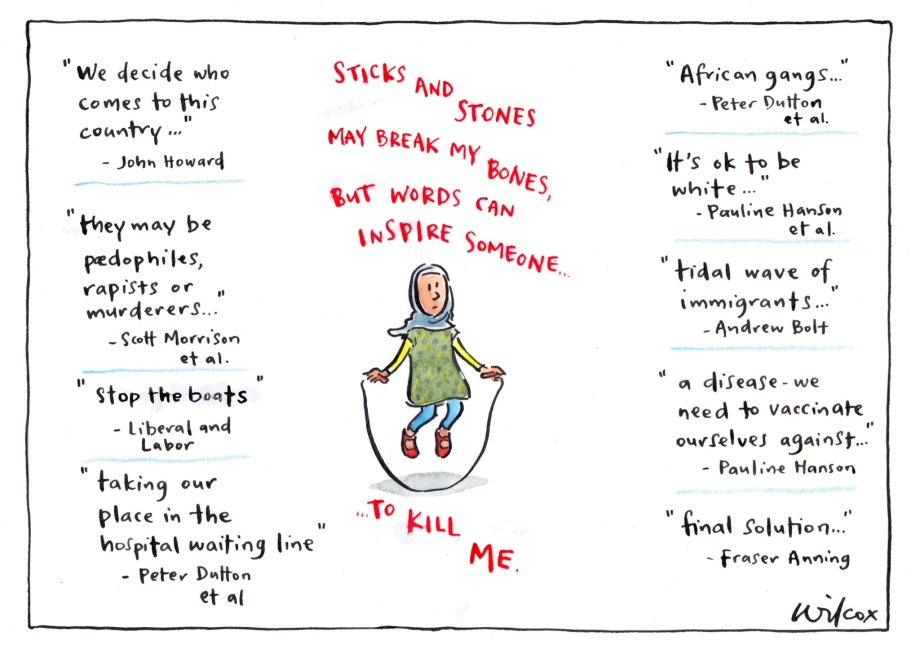 "We decide who
comes to this
country..."
- John Howard
"they may be
pædophiles,
rapists or
murderers..."
- Scott Morrison
et al.
"Stop the boats"
- Liberal and
Labor
"taking our
place in the
hospital waiting line"
- Peter Dutton
et al
STICKS AND
STONES
MAY BREAK MY
BONES,
BUT WORDS CAN
INSPIRE SOMEONE...
...TO KILL
ME.
"African gangs..."
- Peter Dutton
et al.
"It's ok to be
white..."
- Pauline Hanson
et al.
"tidal wave of
immigrants..."
- Andrew Bolt
"a disease - we
need to vaccinate
ourselves against..."
- Pauline Hanson
"final solution..."
- Fraser Anning
Wilcox